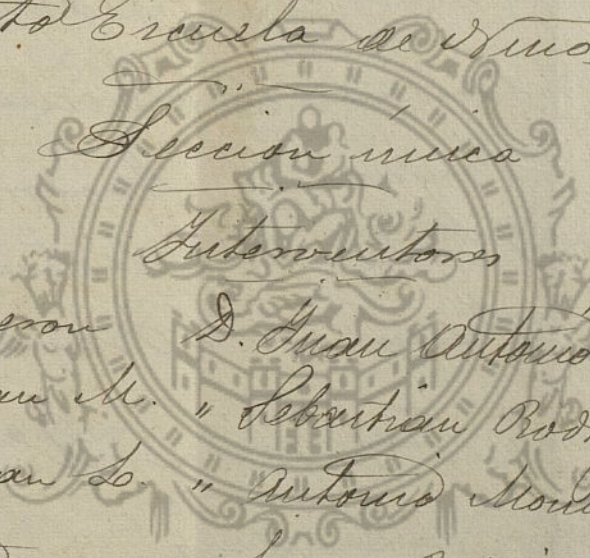 Escuela de Niños
Seccion única
Interventores
D. Juan Antonio
M. " Sebastian Rod
" Antonio Mont